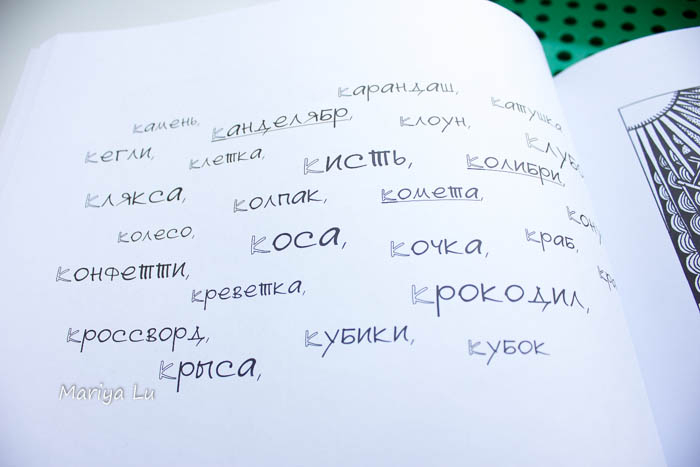 карандаш,
камень, канделябр, клоун, катушка
кегли, клетка, кисть, колибри,
клякса, колпак, комета,
колесо, коса, кочка, краб,
конфетти, креветка, крокодил,
кроссворд, кубики, кубок
крыса,
Mariya Lu